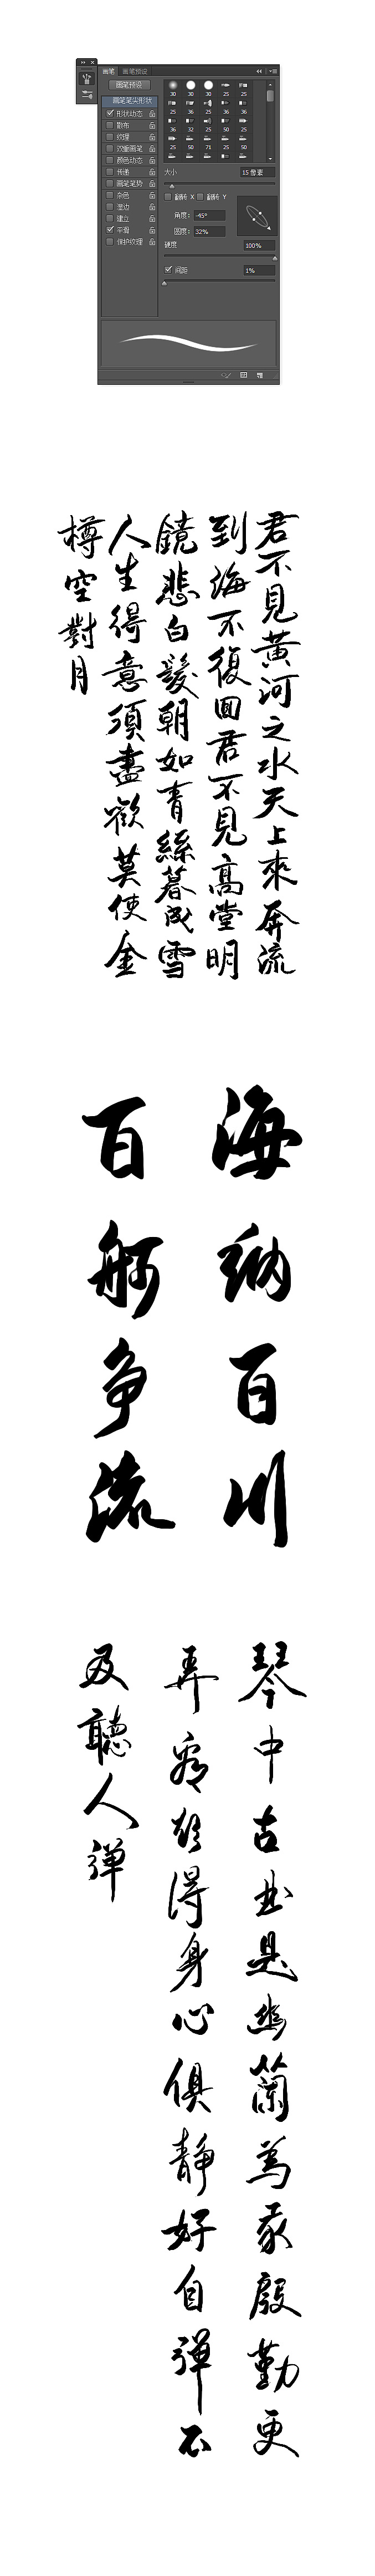 画笔 画笔预设
画笔预设
画笔笔尖形状
形状动态
散布
纹理
双重画笔
颜色动态
传递
画笔笔势
杂色
湿边
建立
平滑
保护纹理
30 30 30 25 25
25 36 25 36 36
36 32 25 50 25
25 50 71 25 50
大小 15 像素
翻转 X 翻转 Y
角度: -45°
圆度: 32%
硬度 100%
间距 1%
君不見黃河之水天上來奔流
到海不復回君不見高堂明
鏡悲白髮朝如青絲暮成雪
人生得意須盡歡莫使金
樽空對月
海納百川
百舸争流
琴中古曲是幽蘭為我殷勤更
弄看欲得身心俱靜好自彈不
及聽人彈